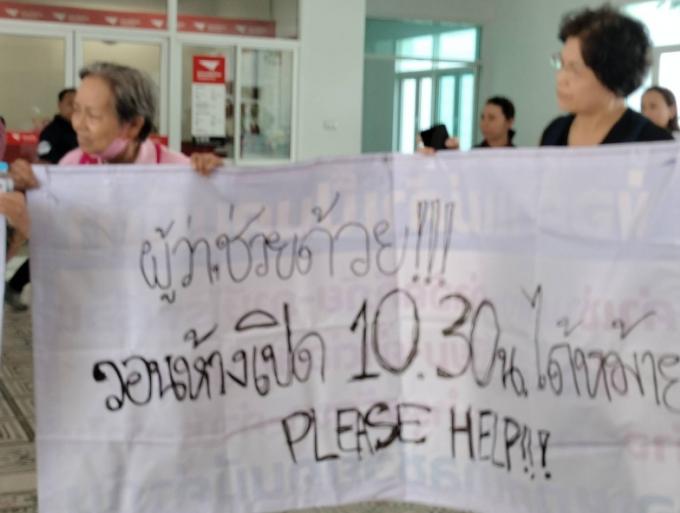 ผู้ว่าช่วยด้วย!!!
วอนห้างเปิด 10.30น. ได้หม้าย
PLEASE HELP!!!